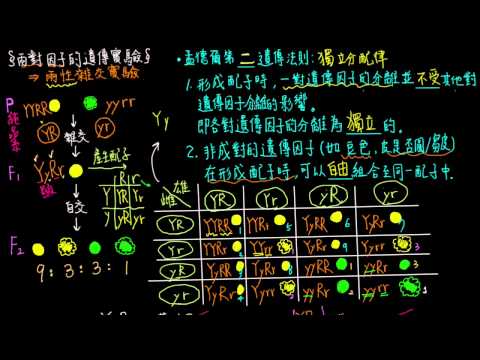 §兩對因子的遺傳實驗§
⇒ 兩性雜交實驗
P YYRR yyrr
YR yr
雜交
F₁ YyRr 產生配子
R r
Y YR Yr
y yR yr
自交
F₂
9 : 3 : 3 : 1
Yy
•孟德爾第二遺傳法則:獨立分配律
1. 形成配子時,一對遺傳因子的分離並不受其他對
遺傳因子分離的影響。
即各對遺傳因子的分離為獨立的。
2. 非成對的遺傳因子(如豆色,
在形成配子時,可以自由組合至同一配子中.
雌 雄 YR Yr yR yr
YR YYRR YYRr YyRR YyRr
Yr YYRr YYrr YyRr Yyrr
yR YyRR YyRr yyRR yyRr
yr YyRr Yyrr yyRr yyrr